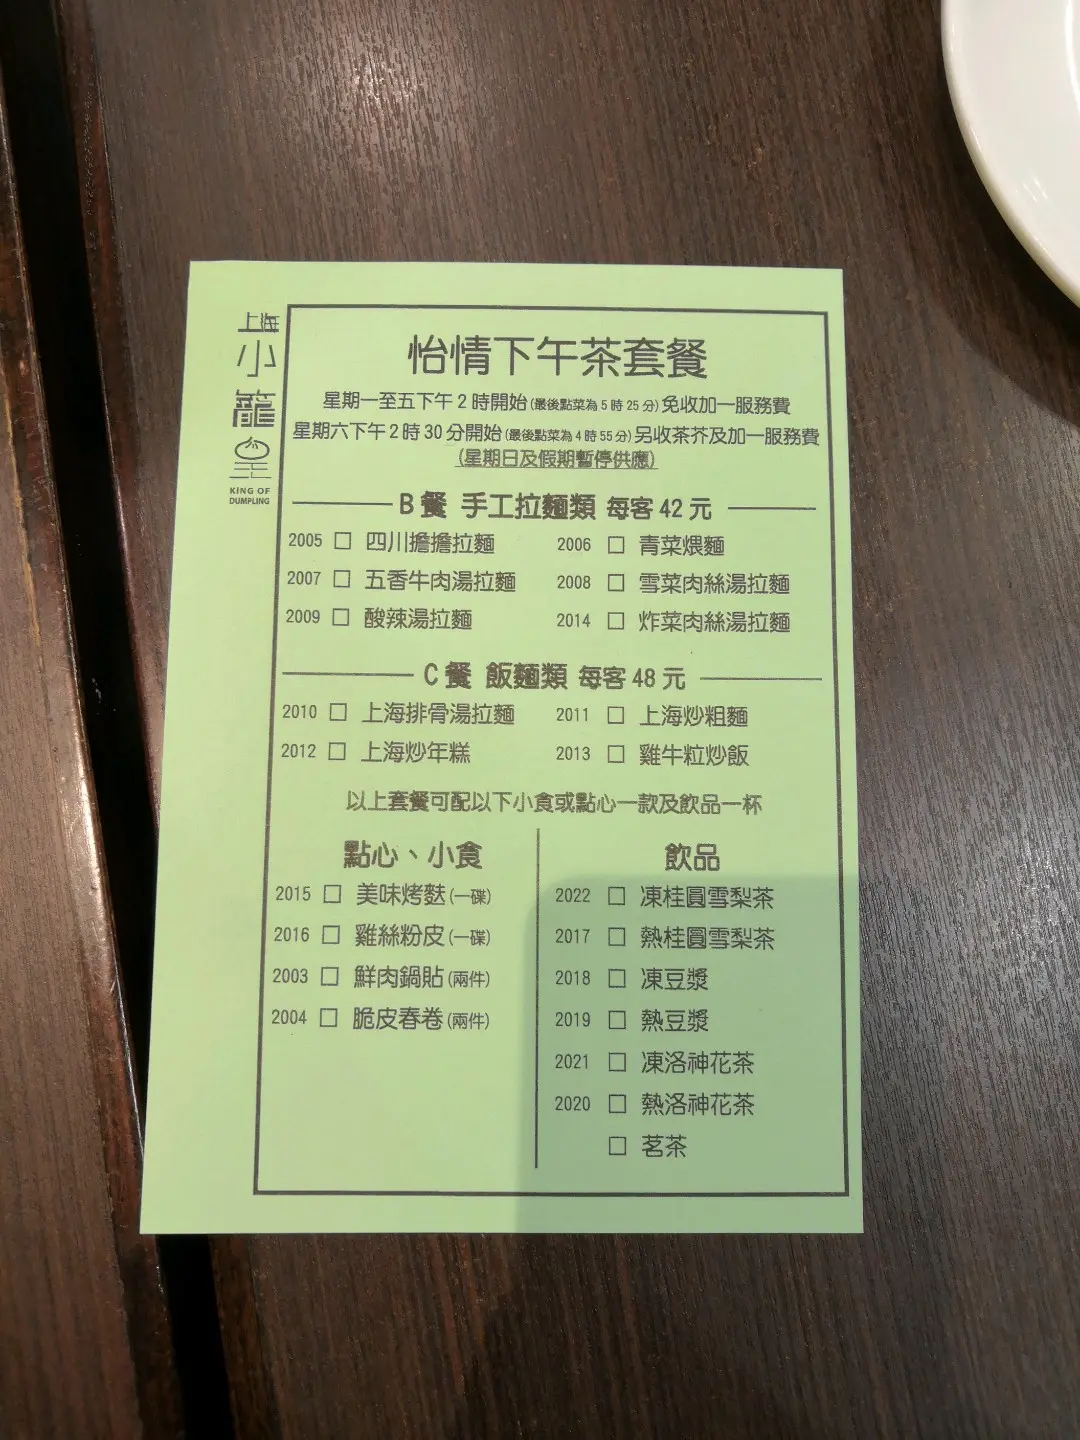 上海
小
籠
皇
KING OF
DUMPLING
怡情下午茶套餐
星期一至五下午2時開始(最後點菜為5時25分)免收加一服務費
星期六下午2時30分開始(最後點菜為4時55分)另收茶芥及加一服務費
(星期日及假期暫停供應)
B餐 手工拉麵類 每客42元
2005 □ 四川擔擔拉麵 2006 □ 青菜煨麵
2007 □ 五香牛肉湯拉麵 2008 □ 雪菜肉絲湯拉麵
2009 □ 酸辣湯拉麵 2014 □ 炸菜肉絲湯拉麵
C餐 飯麵類 每客48元
2010 □ 上海排骨湯拉麵 2011 □ 上海炒粗麵
2012 □ 上海炒年糕 2013 □ 雞牛粒炒飯
以上套餐可配以下小食或點心一款及飲品一杯
點心、小食
2015 □ 美味烤麩(一碟)
2016 □ 雞絲粉皮(一碟)
2003 □ 鮮肉鍋貼(兩件)
2004 □ 脆皮春卷(兩件)
飲品
2022 □ 凍桂圓雪梨茶
2017 □ 熱桂圓雪梨茶
2018 □ 凍豆漿
2019 □ 熱豆漿
2021 □ 凍洛神花茶
2020 □ 熱洛神花茶
□ 茗茶